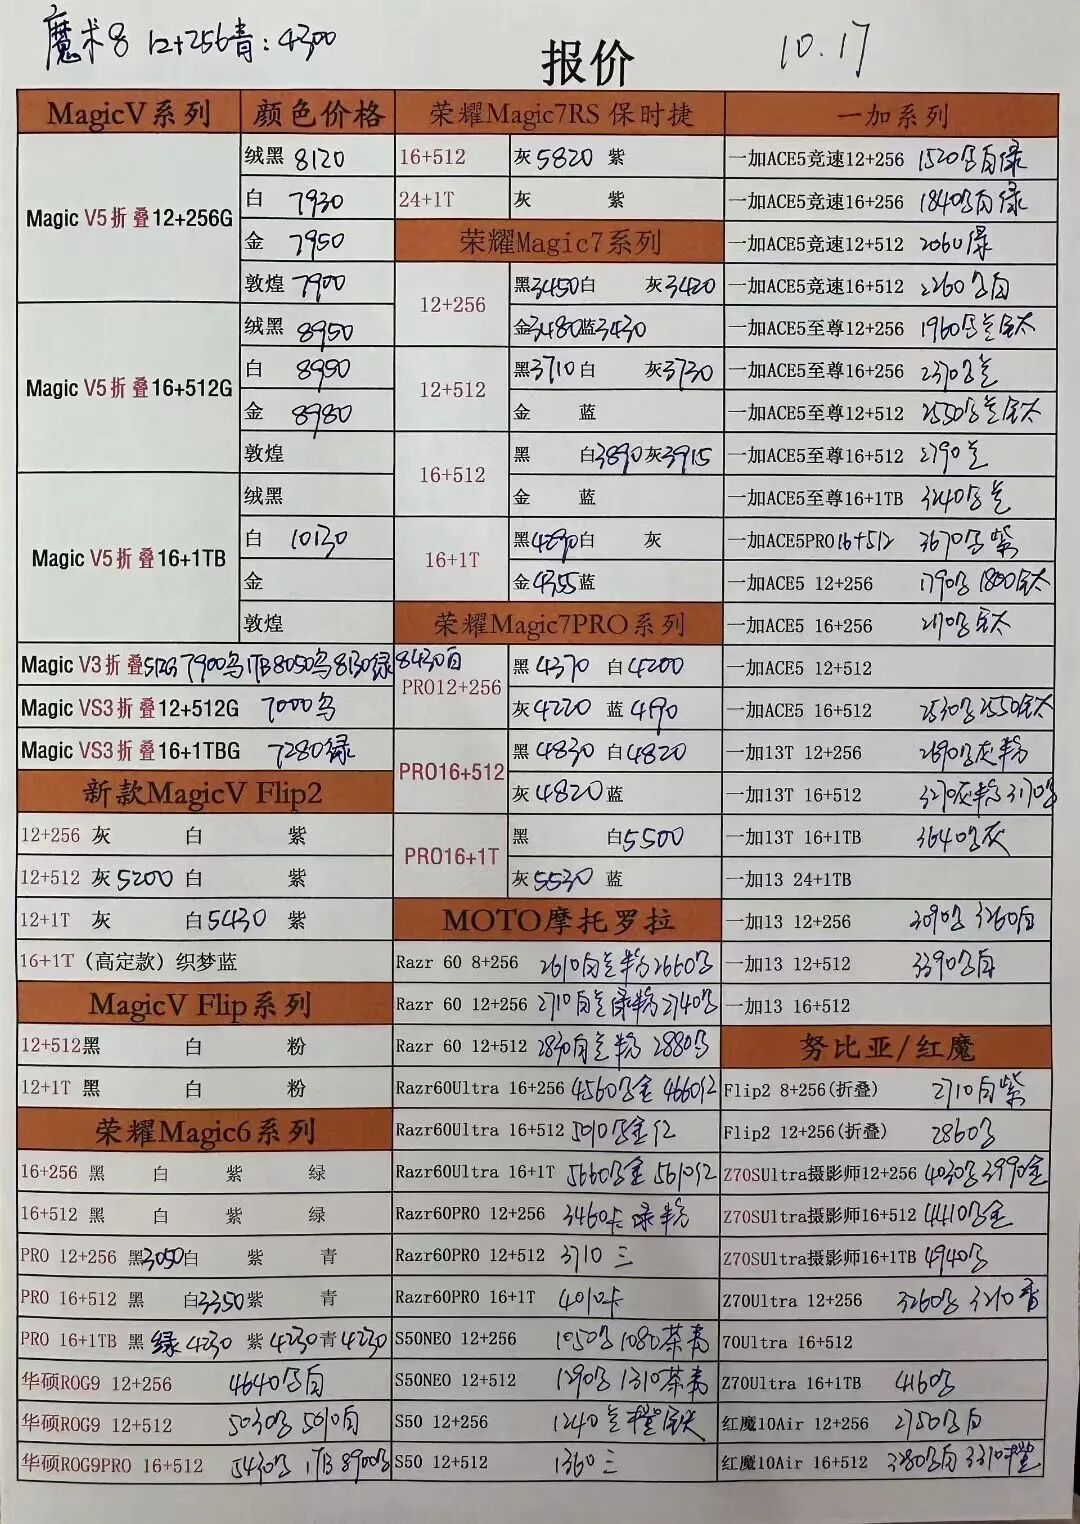 魔术8 12+256青:4300
报价
10.17
MagicV系列 颜色价格
Magic V5折叠12+256G
绒黑 8120
白 7930
金 7950
敦煌 7900
Magic V5折叠16+512G
绒黑 8950
白 8990
金 8980
敦煌
Magic V5折叠16+1TB
绒黑
白 10130
金
敦煌
Magic V3折叠512G 7900 1TB 8050 8130绿 8430白
Magic VS3折叠12+512G 7000
Magic VS3折叠16+1TBG 7280绿
新款MagicV Flip2
12+256 灰 白 紫
12+512 灰5200 白 紫
12+1T 灰 白5430 紫
16+1T（高定款）织梦蓝
MagicV Flip系列
12+512黑 白 粉
12+1T 黑 白 粉
荣耀Magic6系列
16+256 黑 白 紫 绿
16+512 黑 白 紫 绿
PRO 12+256 黑3050白 紫 青
PRO 16+512 黑 白3350紫 青
PRO 16+1TB 黑 绿4230 紫4230青4230
华硕ROG9 12+256 4640 白
华硕ROG9 12+512 5030 5010白
华硕ROG9PRO 16+512 5430 1TB 8900
荣耀Magic7RS 保时捷
16+512 灰5820 紫
24+1T 灰 紫
荣耀Magic7系列
12+256
黑3450白 灰3420
金3480蓝3430
12+512
黑3710白 灰3730
金 蓝
16+512
黑 白3890灰3915
金 蓝
16+1T
黑4290白 灰
金4355蓝
荣耀Magic7PRO系列
PRO12+256
黑4370 白4200
灰4220 蓝4190
PRO16+512
黑4830 白4820
灰4820蓝
PRO16+1T
黑 白5500
灰5530 蓝
MOTO摩托罗拉
Razr 60 8+256 2610白 粉2660
Razr 60 12+256 2710白 绿粉2740
Razr 60 12+512 2830白 粉 2880
Razr60Ultra 16+256 4560 金 4660红
Razr60Ultra 16+512 5010 金红
Razr60Ultra 16+1T 5660 金 5610红
Razr60PRO 12+256 3460卡 绿粉
Razr60PRO 12+512 3710 三
Razr60PRO 16+1T 4010卡
S50NEO 12+256 1050 1080茶青
S50NEO 12+512 1290 1310茶青
S50 12+256 1240
S50 12+512 1360三
一加系列
一加ACE5竞速12+256 1520 白绿
一加ACE5竞速16+256 1840 白绿
一加ACE5竞速12+512 2060绿
一加ACE5竞速16+512 2260 白
一加ACE5至尊12+256 1960 钛
一加ACE5至尊16+256 2370
一加ACE5至尊12+512 2550 钛
一加ACE5至尊16+512 2790
一加ACE5至尊16+1TB 3240
一加ACE5PRO16+512 3670 紫
一加ACE5 12+256 1790 1800钛
一加ACE5 16+256 2170 钛
一加ACE5 12+512
一加ACE5 16+512 2530 2550钛
一加13T 12+256 2690 灰粉
一加13T 16+512 3270灰粉3170
一加13T 16+1TB 3640 灰
一加13 24+1TB
一加13 12+256 3090 3260白
一加13 12+512 3390 白
一加13 16+512
努比亚/红魔
Flip2 8+256(折叠) 2710白紫
Flip2 12+256(折叠) 2860
Z70SUltra摄影师12+256 4030 3990金
Z70SUltra摄影师16+512 4410 金
Z70SUltra摄影师16+1TB 4940
Z70Ultra 12+256 3260 3210
70Ultra 16+512
Z70Ultra 16+1TB 4160
红魔10Air 12+256 2750 白
红魔10Air 16+512 3280 白 3310橙